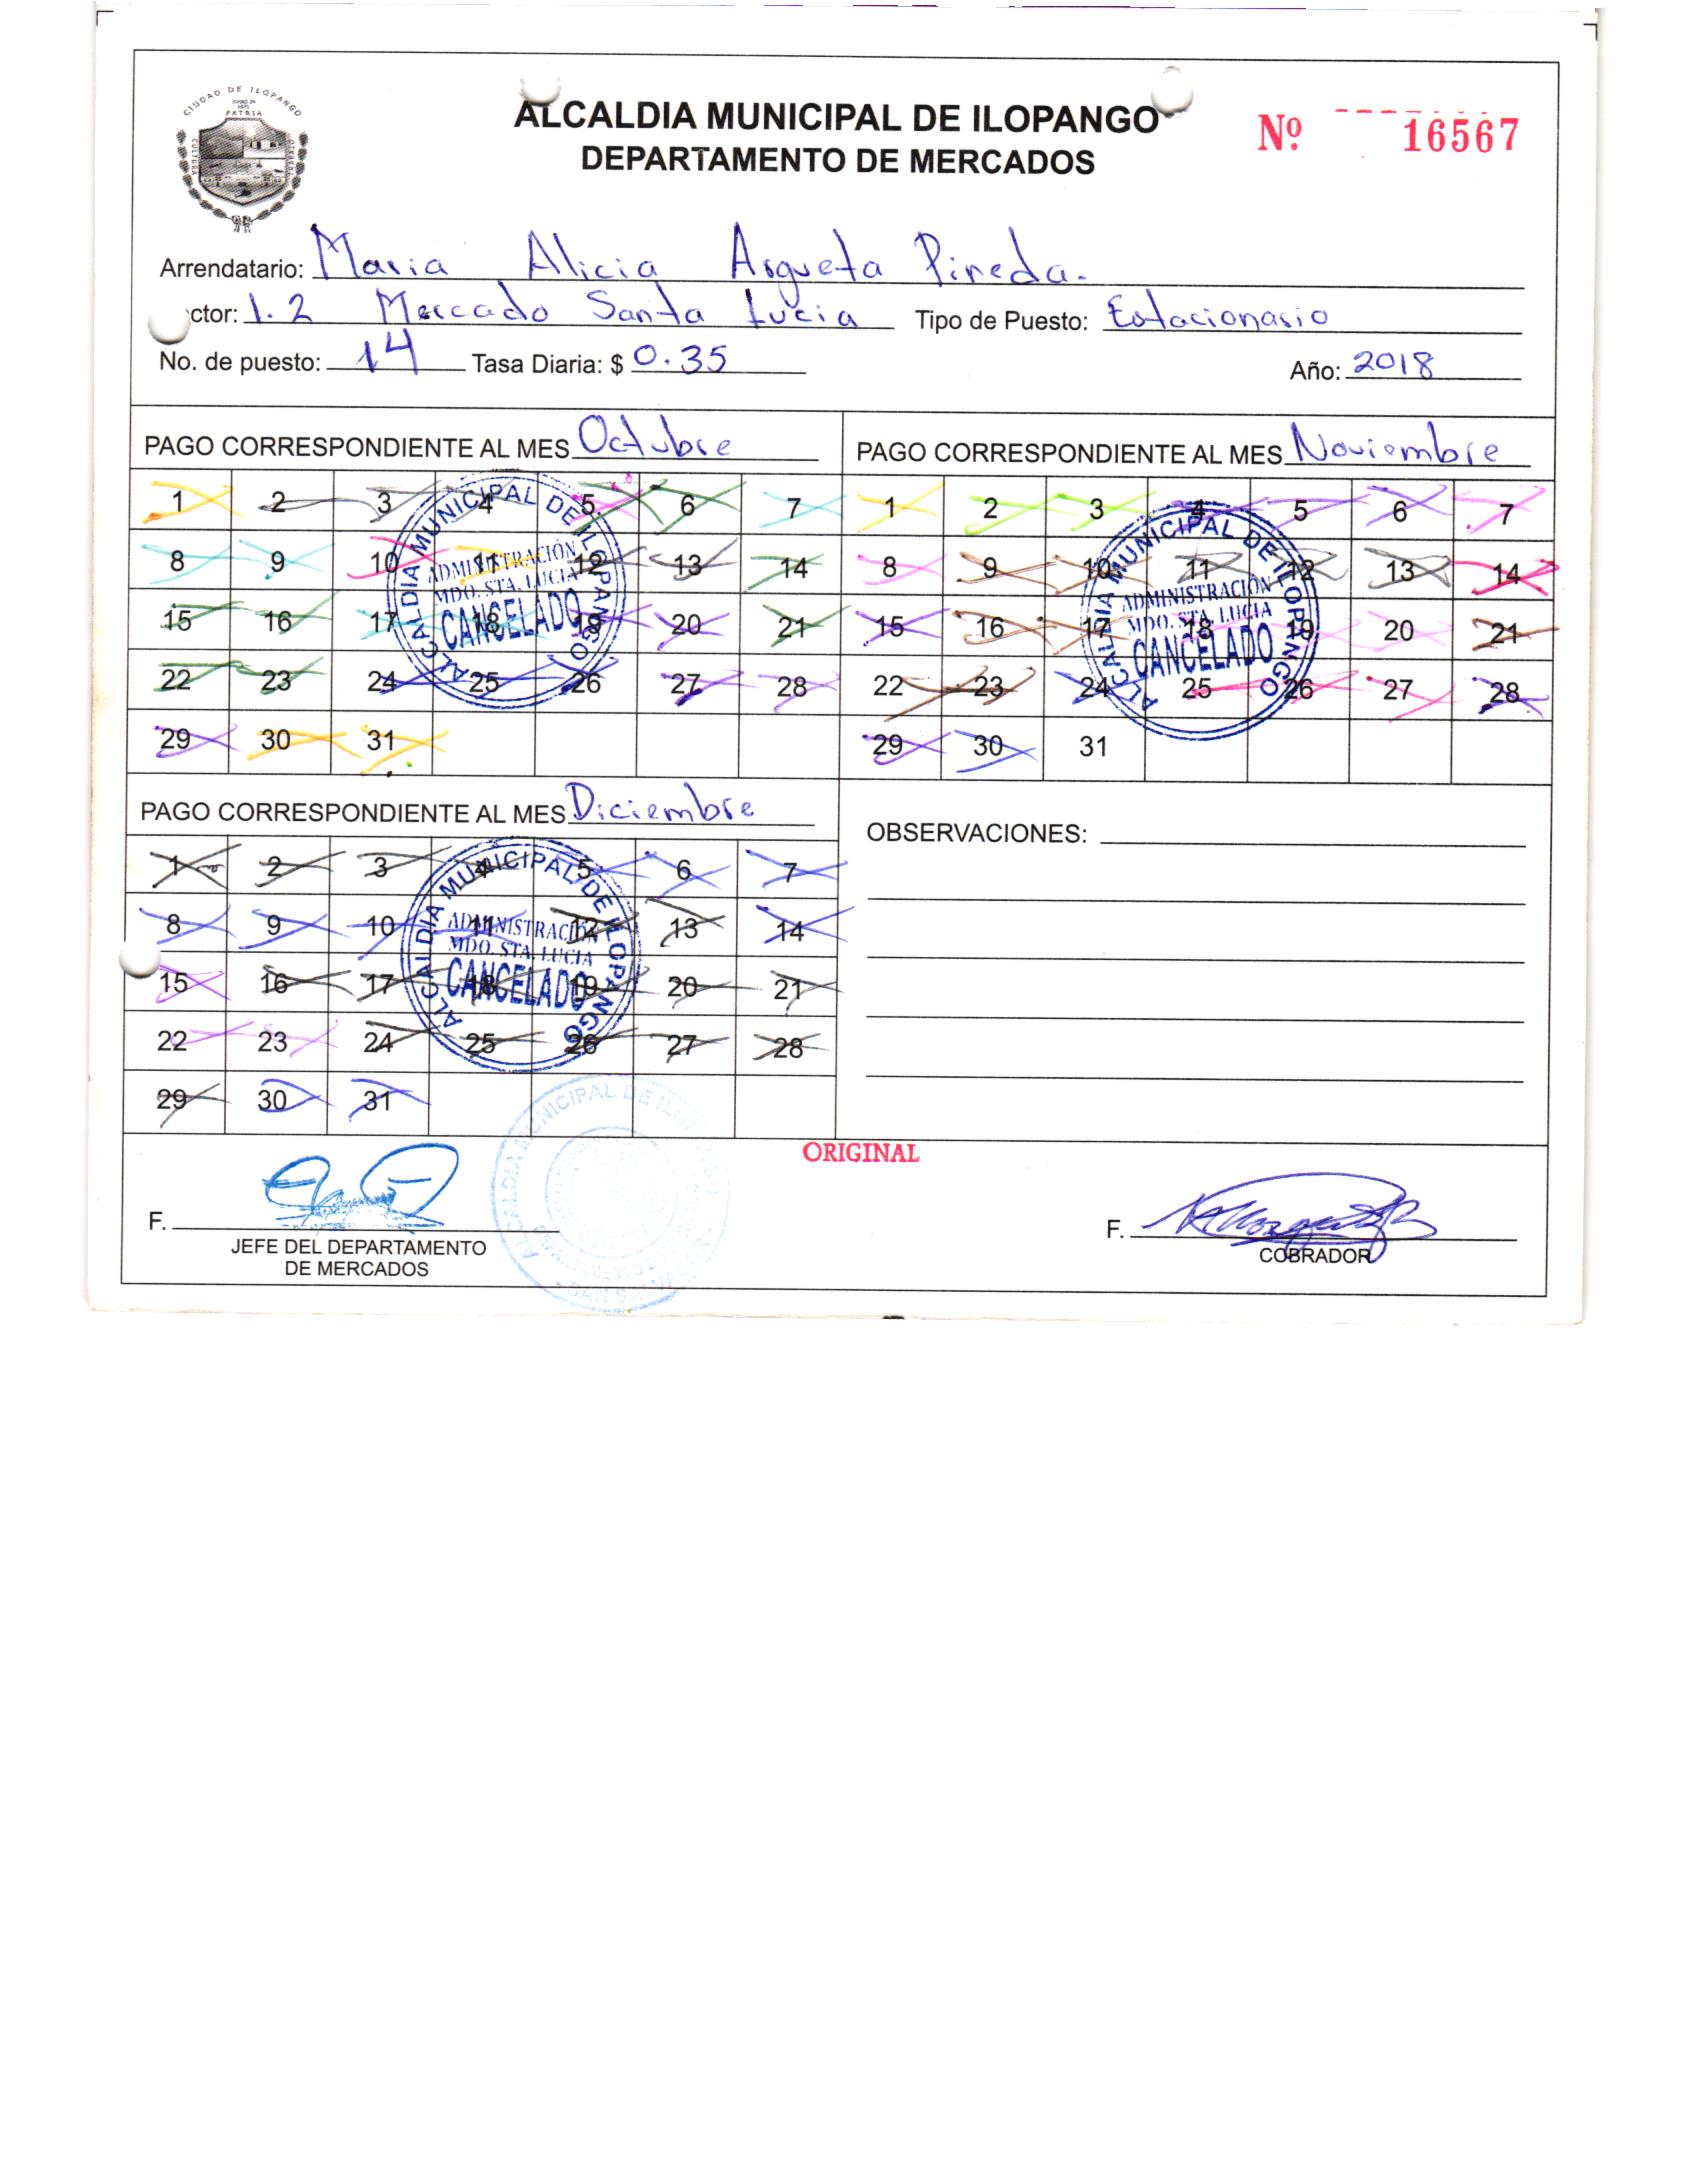 CIUDAD DE ILOPANGO
PATRIA
CULTURA
ALCALDIA MUNICIPAL DE ILOPANGO
DEPARTAMENTO DE MERCADOS
Nº 16567
Arrendatario: Maria Alicia Argueta Pineda.
ctor: 1.2 Mercado Santa Lucia Tipo de Puesto: Estacionario
No. de puesto: 14 Tasa Diaria: $ 0.35 Año: 2018
PAGO CORRESPONDIENTE AL MES Octubre
1 2 3 4 5 6 7
8 9 10 11 12 13 14
15 16 17 18 19 20 21
22 23 24 25 26 27 28
29 30 31
ALCALDIA MUNICIPAL DE ILOPANGO
ADMINISTRACIÓN
MDO. STA. LUCIA
CANCELADO
PAGO CORRESPONDIENTE AL MES Noviembre
1 2 3 4 5 6 7
8 9 10 11 12 13 14
15 16 17 18 19 20 21
22 23 24 25 26 27 28
29 30 31
ALCALDIA MUNICIPAL DE ILOPANGO
ADMINISTRACIÓN
MDO. STA. LUCIA
CANCELADO
PAGO CORRESPONDIENTE AL MES Diciembre
1 2 3 4 5 6 7
8 9 10 11 12 13 14
15 16 17 18 19 20 21
22 23 24 25 26 27 28
29 30 31
ALCALDIA MUNICIPAL DE ILOPANGO
ADMINISTRACIÓN
MDO. STA. LUCIA
CANCELADO
OBSERVACIONES:
ORIGINAL
ALCALDIA MUNICIPAL DE
F.
JEFE DEL DEPARTAMENTO
DE MERCADOS
F.
COBRADOR